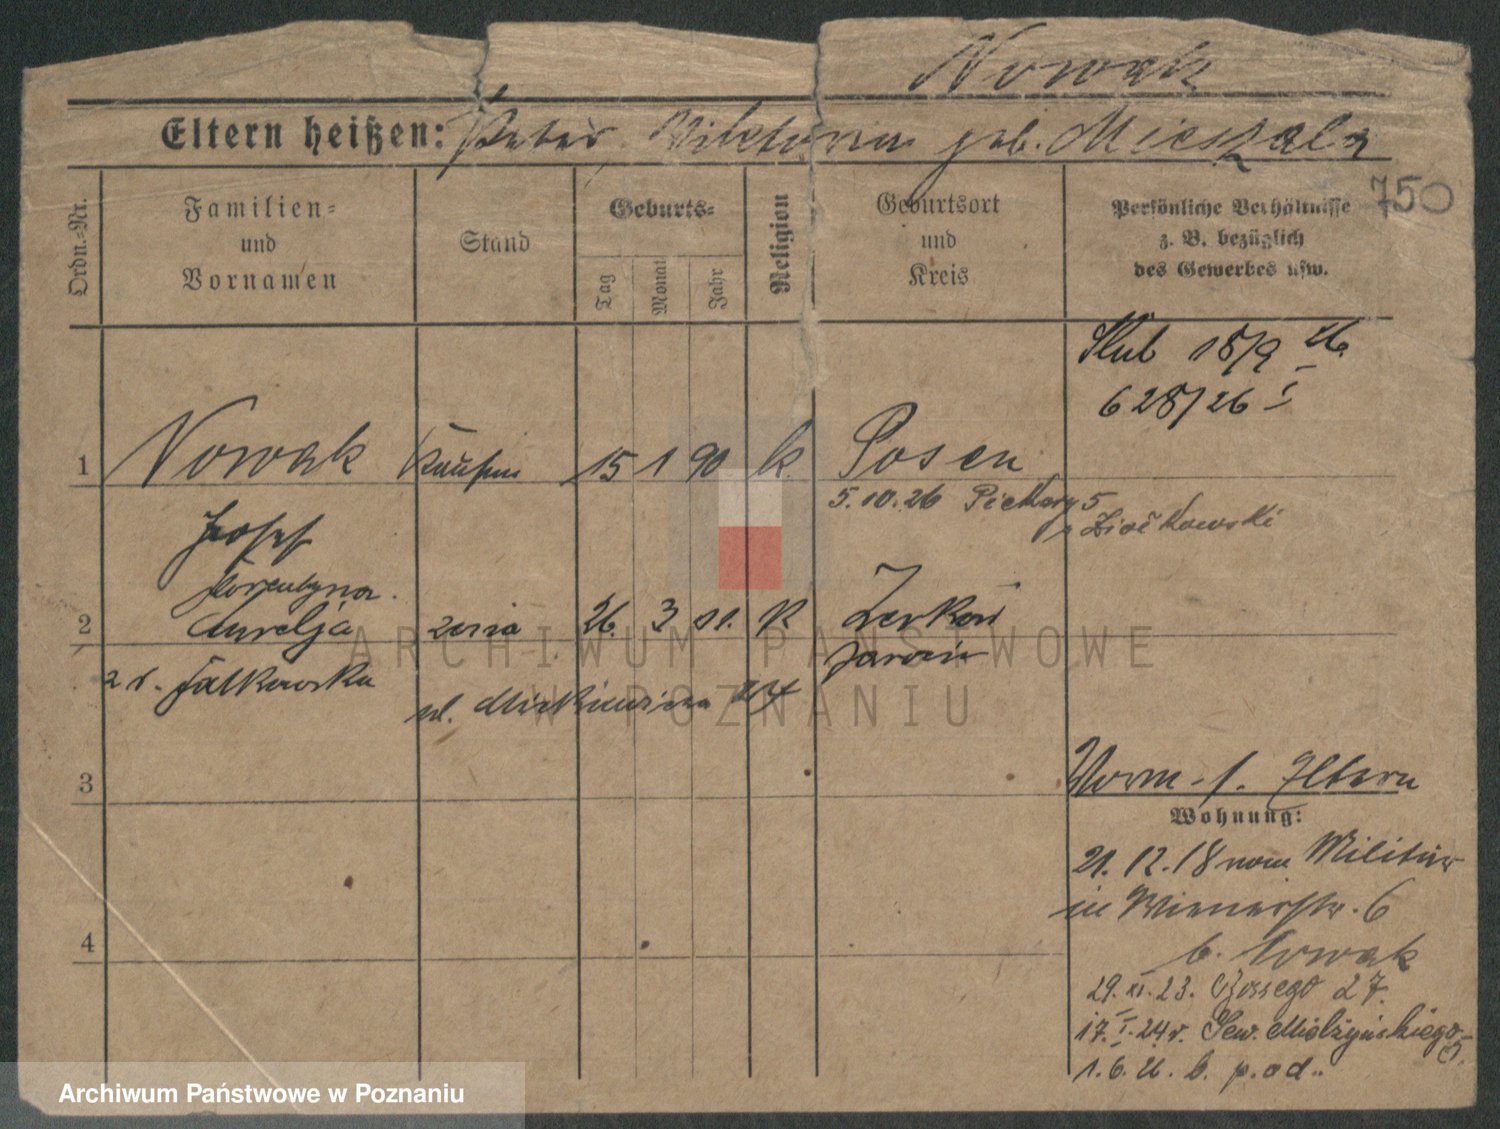 Nowak
Eltern heißen: Peter, Viktoria geb. Mieszala
750
Ordn.-Nr.
Familien-
und
Vornamen
Stand
Geburts-
Tag
Monat
Jahr
Religion
Geburtsort
und
Kreis
Persönliche Verhältnisse
z. B. bezüglich
des Gewerbes usw.
Ślub 18/9 26
628/26 I
1 Nowak Kaufm 15 1 90 k. Posen
5.10.26 Piekary 5
Josef
2 Aurelja 26. 3 01. K Zerkow
Jarocin
z d. Fałkowska
ul. Mickiewicza 24
3
Vorm. s. Eltern
Wohnung:
21.12.18 vom Militär
in Wienerstr. 6
b. Nowak
29.XI.23. 27.
17.I.24r. Sew. Mielżyńskiego 5.
1.6.26. b. p. od..
4
ARCHIWUM PAŃSTWOWE
W POZNANIU
Archiwum Państwowe w Poznaniu